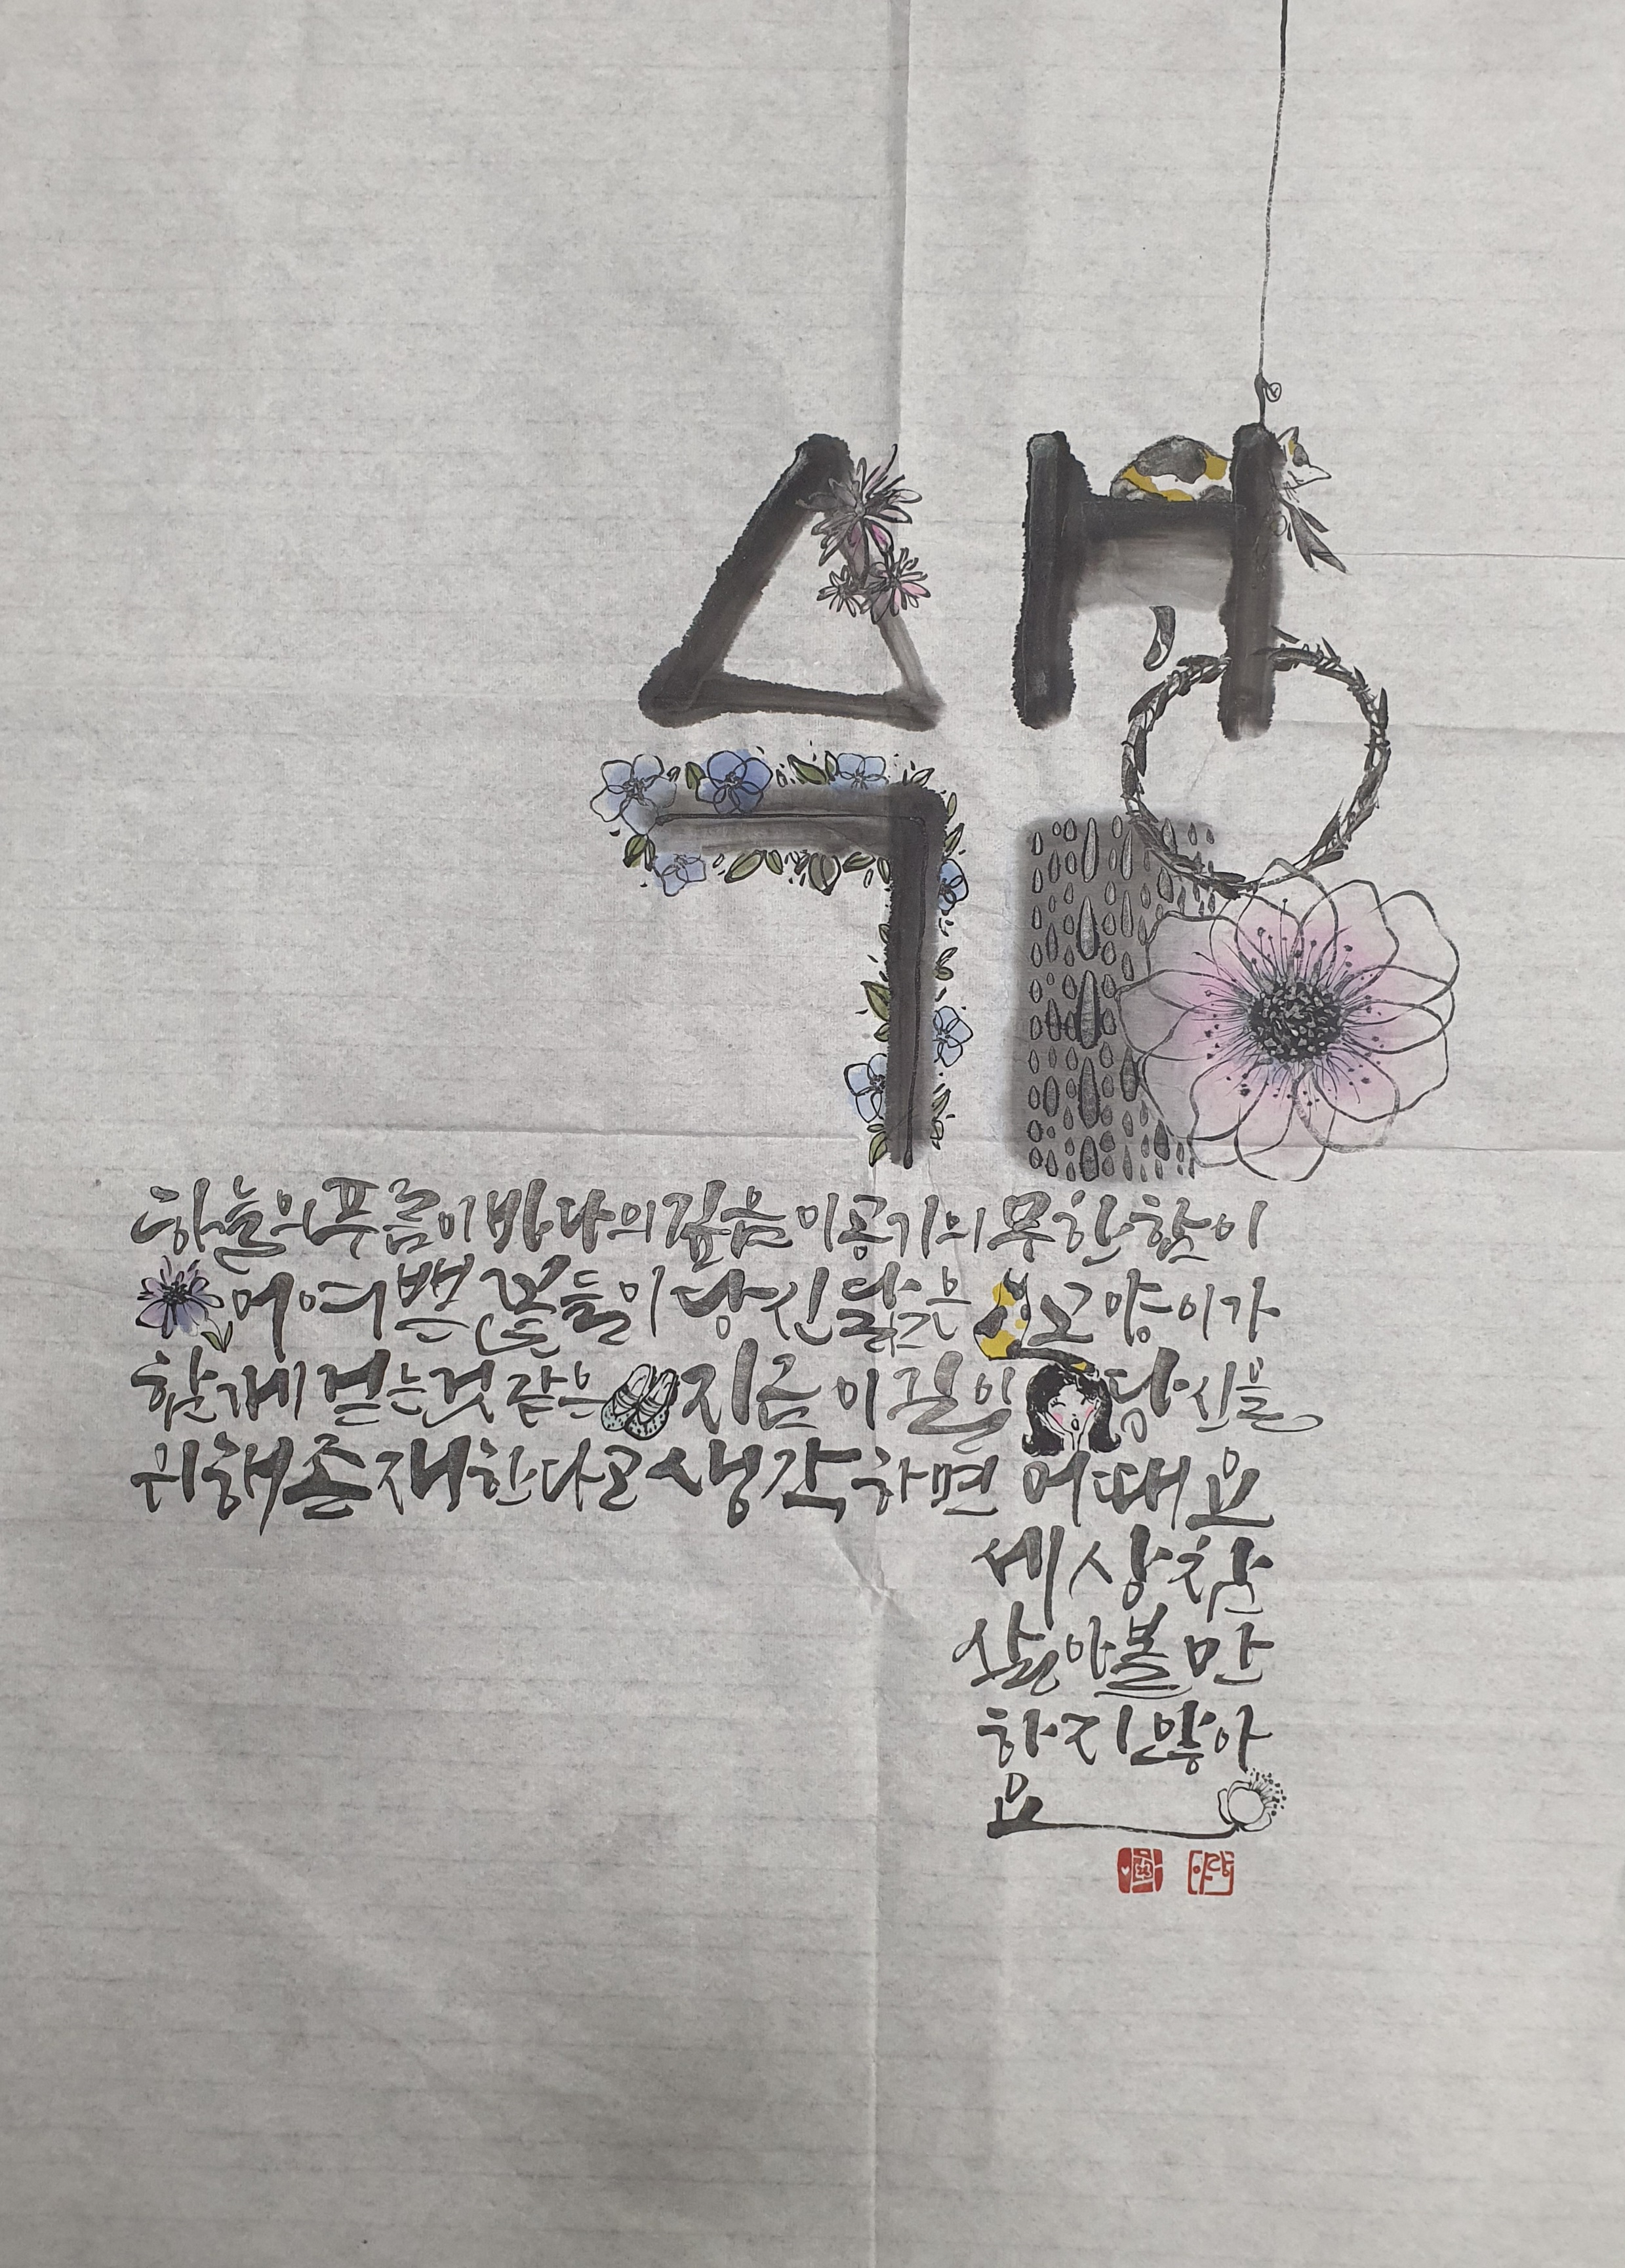 하늘의 푸름이 바다의 깊음이 공기의 무한함이
어여쁜 꽃들이 당신 닮은 고양이가
함께 걷는 것 같은 지금 이 길이 당신을
위해 존재한다고 생각하면 어때요
세상 참
살아볼만
하지 않아
요